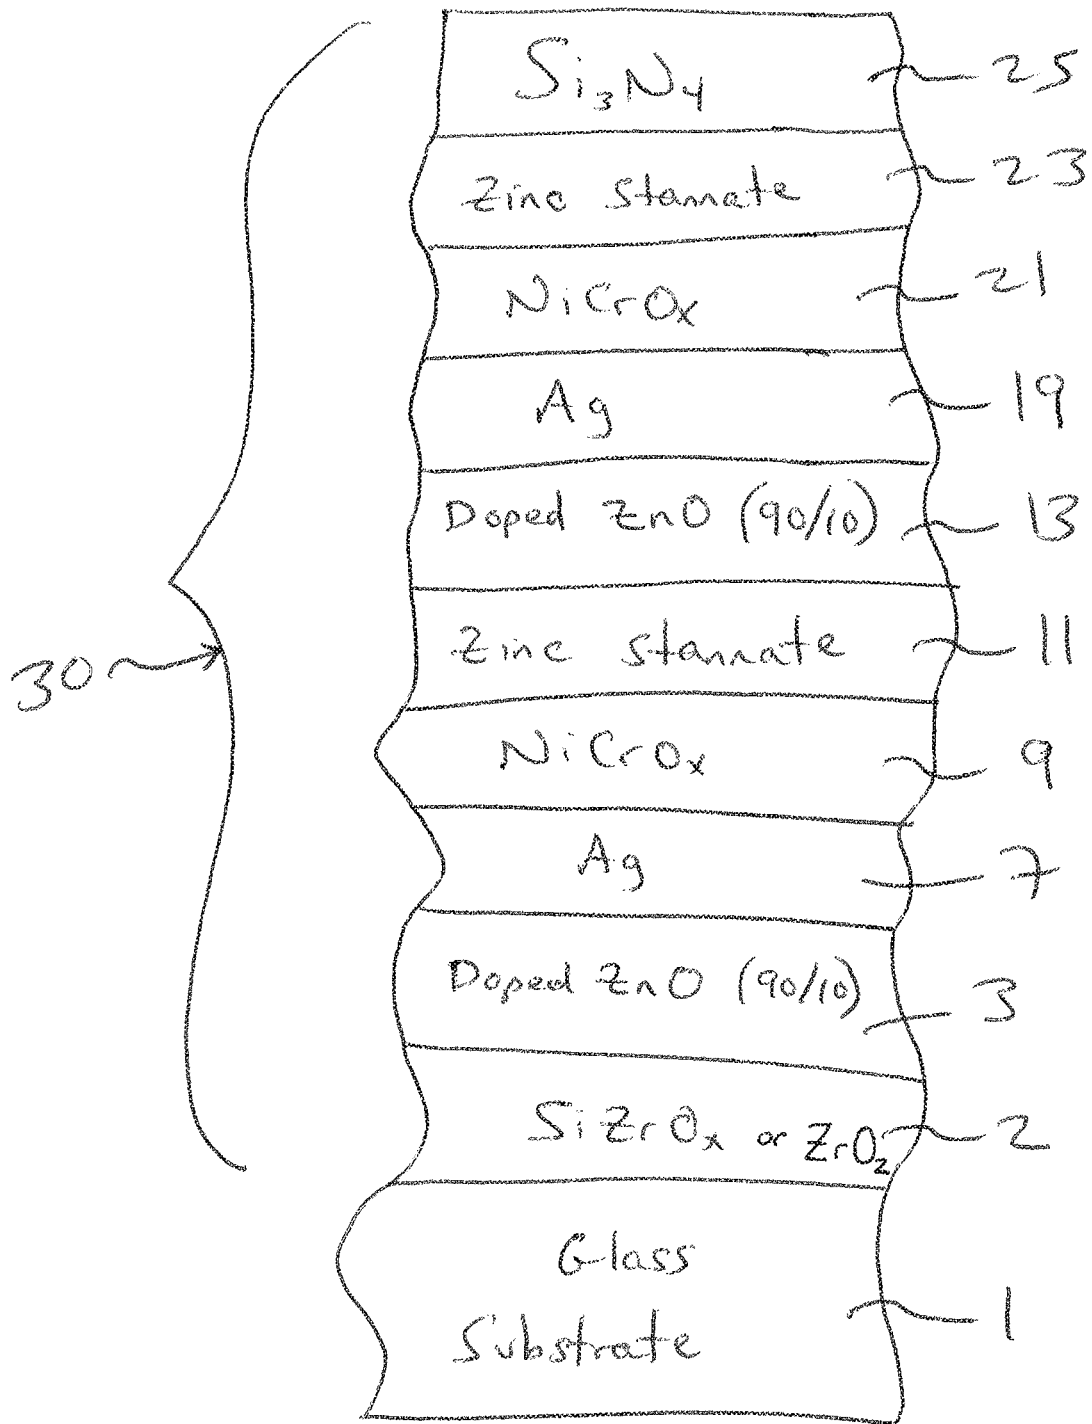 Si₃N₄ 25
Zinc stannate 23
NiCrOx 21
Ag 19
Doped ZnO (90/10) 13
Zinc stannate 11
30
NiCrOx 9
Ag 7
Doped ZnO (90/10) 3
SiZrOx or ZrO₂ 2
Glass
Substrate 1